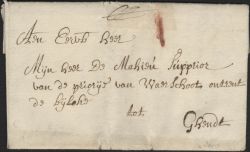 Aen Eerw Heer
Mijn heer De Mahieu Supprior
van de priorije van Waerschoot omtrent
de bijloke
tot
Ghendt